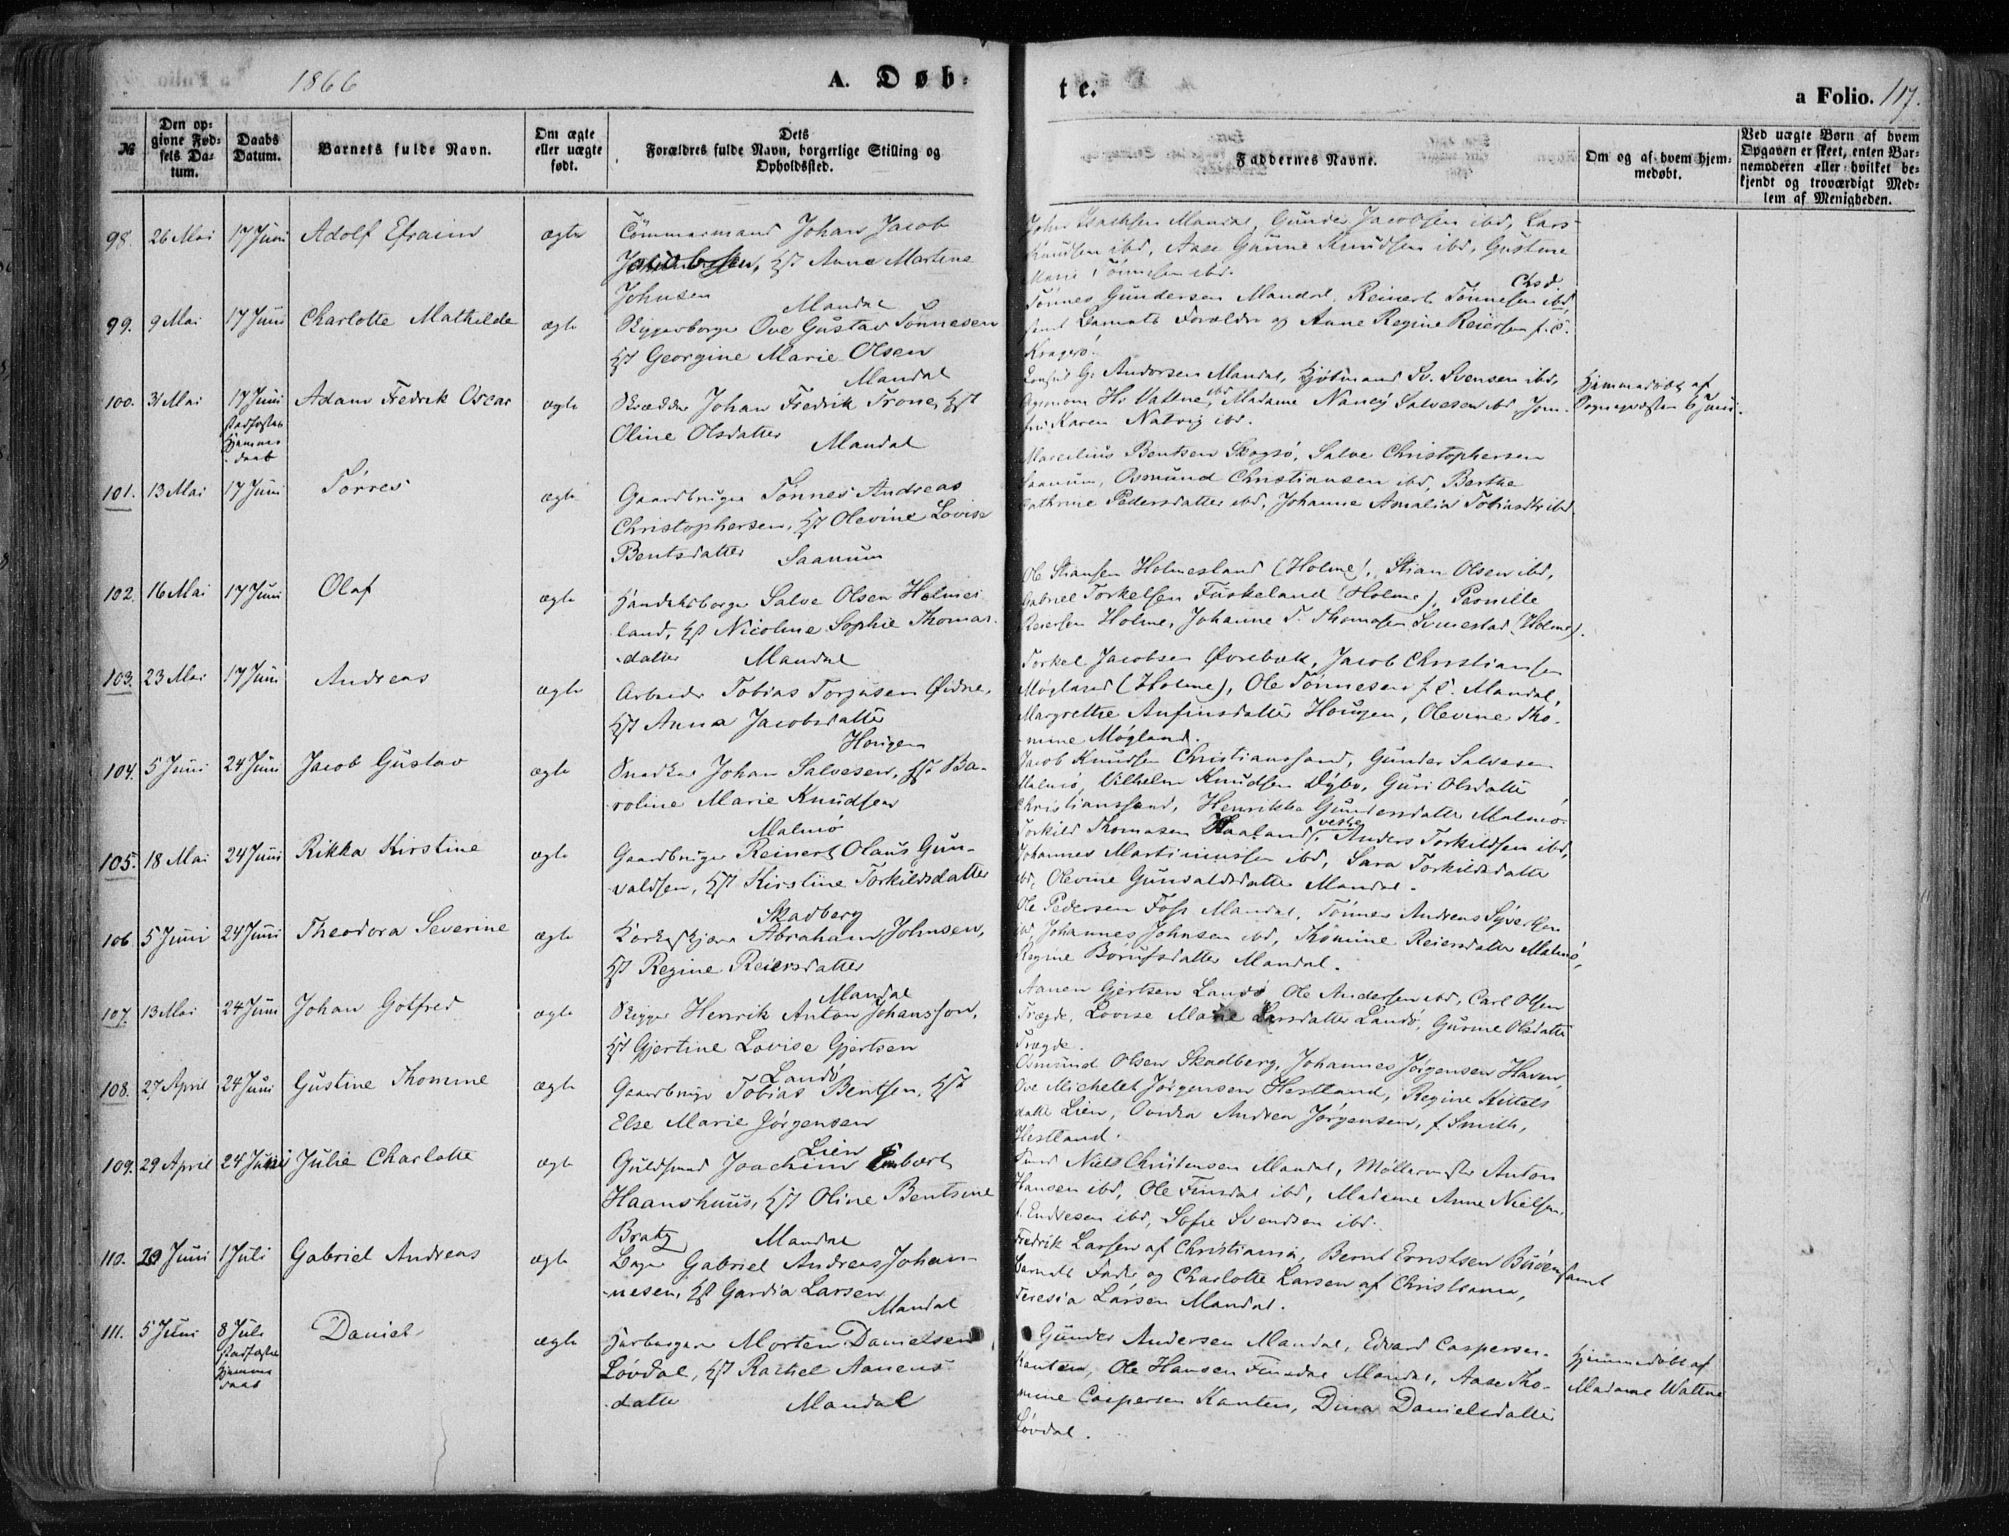 1866
A. Døb-
te.
a Folio. 117.
№
Den op-
givne Fød-
sels Da-
tum.
Daabs
Datum.
Barnets fulde Navn.
Om ægte
eller uægte
født.
Dets
Forældres fulde Navn, borgerlige Stilling og
Opholdssted.
Faddernes Navne.
Om og af hvem hjem-
medøbt.
Ved uægte Børn af hvem
Opgaven er skeet, enten Bar-
nemoderen eller hvilket be-
kjendt og troværdigt Med-
lem af Menigheden.
98. 26 Mai 17 Juni Adolf Efraim ægte Tømmermand Johan Jacob
Hst Anne Martine
Johnsen Mandal
John Isachsen Mandal, Gunder Jacobsen ibd, Lars
Knudsen ibd, Aase Gunne Knudsen ibd, Gustine
Marie Tönnesen ibd.
99. 9 Mai 17 Juni Charlotte Mathilde ægte Riggerborger Ove Gustav Tönnesen
Hst Georgine Marie Olsen
Mandal
Chsd
Tönnes Gundersen Mandal, Reinert Tönnesen ibd,
samt Barnets Forældre og Anne Regine Reiersen f. S.
Kragerö.
100. 31 Mai 17 Juni
stadfæstet
Hjemme
daab
Adam Fredrik Oscar ægte Skrædder Johan Fredrik Trone, Hst
Oline Olsdatter Mandal
Consul G. Andersen Mandal, Kjöbmand Sv. Svensen ibd,
Agronom H. Valtne ibd, Madame Nancy Salvesen ibd Jom-
fru Karen Natvig ibd.
Hjemmedøbt af
Sognepræsten 6 Juni.
101. 13 Mai 17 Juni Törres ægte Gaardbruger Tönnes Andreas
Christophersen, Hst Olevine Lovise
Bentsdatter Saanum
Marcelius Bentsen Skogsö, Salve Christophersen
Saanum, Osmund Christiansen ibd, Berthe
Cathrine Pedersdatter ibd, Johanne Amalia Tobiasdtr ibd.
102. 16 Mai 17 Juni Olaf ægte Handelsborger Salve Olsen Holmes
land, Hst Nicoline Sophie Thomas-
datter Mandal
Ole Stiansen Holmesland (Holme), Stian Olsen ibd,
Gabriel Torkelsen Fuskeland (Holme), Pernille
Reiersen Holme, Johanne T. Thomasen Svinestad (Holme).
103. 23 Mai 17 Juni Andreas ægte Arbeider Tobias Torjusen Øidne,
Hst Anna Jacobsdatter
Hougen
Torkel Jacobsen Øvrebæk, Jacob Christiansen
Møgland (Holme), Ole Tönnesen f. S. Mandal,
Margrethe Anfinsdatter Hougen, Olevine Tho-
mine Møgland.
104. 5 Juni 24 Juni Jacob Gustav ægte Snedker Johan Salvesen, Hst Ba-
roline Marie Knudsen
Malmö
Jacob Knudsen Christianssand, Gunder Salvesen
Malmö, Vilhelm Knudsen Dybo, Guri Olsdatter
Christianssand, Henrikke Gundersdatter Malmö.
105. 18 Mai 24 Juni Rikka Kirstine ægte Gaardbruger Reinert Olaus Gun-
valdsen, Hst Kirstine Torkildsdatter
Skadberg
Torkild Thomasen Haaland vestre, Anders Torkildsen ibd,
Johannes Martinussen ibd, Sara Torkildsdatter
ibd, Olevine Gunvaldsdatter Mandal.
106. 5 Juni 24 Juni Theodora Severine ægte Korkeskjærer Abraham Johnsen,
Hst Regine Reiersdatter
Mandal
Ole Pedersen Foss Mandal, Tönnes Andreas Syvertsen
ibd, Johannes Johnsen ibd, Thomine Reiersdatter Malmö,
Regine Börufsdatter Mandal.
107. 13 Mai 24 Juni Johan Gotfred ægte Rigger Henrik Anton Johansson,
Hst Gjertine Lovise Gjertsen
Landö
Aanen Gjertsen Landö, Ole Andersen ibd, Carl Olsen
Trægde, Lovise Marie Larsdatter Landö, Gurine Olsdatter
Trægde.
108. 27 April 24 Juni Gustine Thomine ægte Gaardbruger Tobias Bentsen, Hst
Else Marie Jörgensen
Lien
Osmund Olsen Skadberg, Johannes Jörgensen Haven,
Ove Michelet Jörgensen Hestland, Regine Kittels
datter Lien, Ovidia Andrea Jörgensen, f. Smith,
Hestland.
109. 29 April 24 Juni Julie Charlotte ægte Guldsmed Joachim Embert
Haanshuus, Hst Oline Bentsine
Bratz Mandal
Smed Niels Christensen Mandal, Møllermester Anton
Hansen ibd, Ole Finsdal ibd, Madame Anne Nielsen,
f. Endresen ibd, Sofie Svendsen ibd.
110. 20 Juni 1 Juli Gabriel Andreas ægte Bager Gabriel Andreas Johan-
nesen, Hst Gardia Larsen
Mandal
Fredrik Larsen af Christiania, Bernt Ernstsen Buöen samt
Barnets Fader og Charlotte Larsen af Christiania,
Teresia Larsen Mandal.
111. 5 Juni 8 Juli
stadfæstet
Hjemme
daab
Daniel ægte Morten Danielsen
Lövdal, Hst Rachel Aanens
datter Mandal
Gunder Andersen Mandal, Edvard Caspersen
Kanten, Ole Hansen Finsdal Mandal, Aase Tho-
mine Caspersen Kanten, Dina Danielsdatter
Lövdal.
Hjemmedøbt af
Madame Waltne